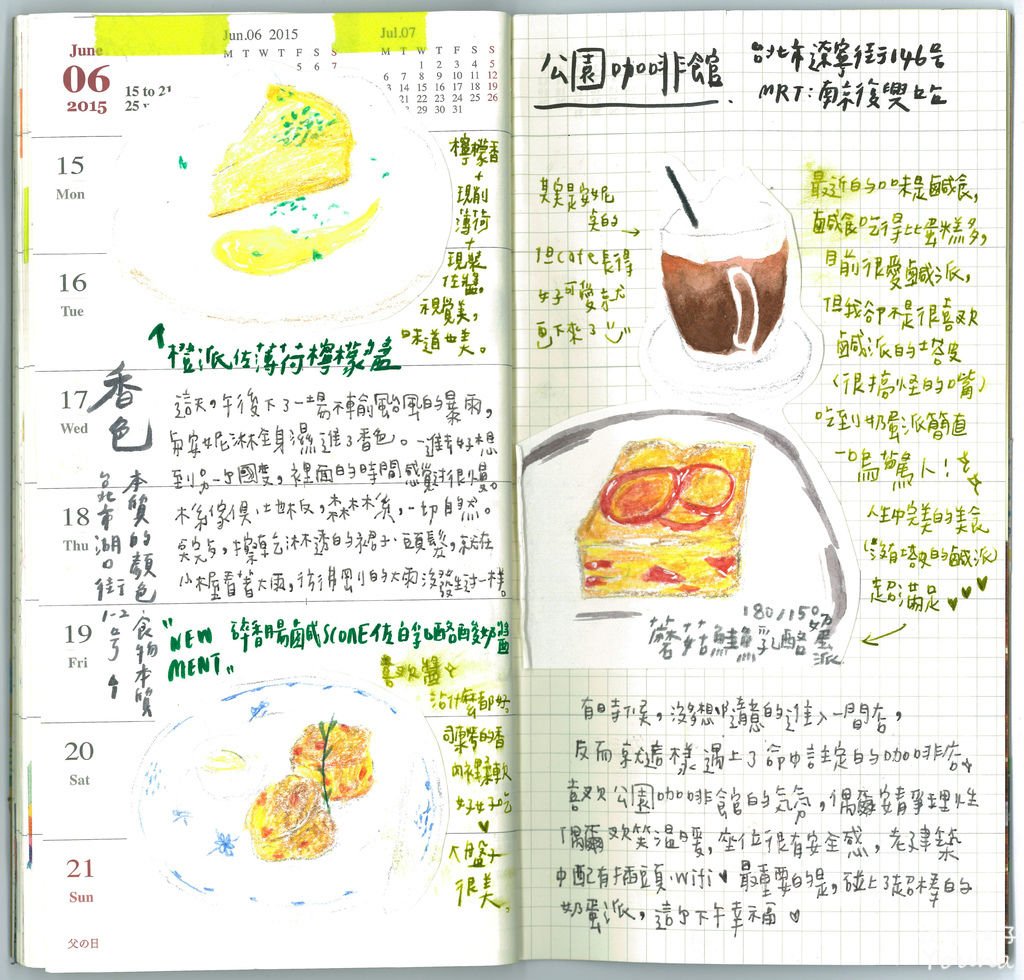 June
06
2015
15 to 21
Jun.06 2015
M T W T F S S
5 6 7
Jul.07
M T W T F S S
1 2 3 4 5
6 7 8 9 10 11 12
15
Mon
16
Tue
17
Wed
18
Thu
19
Fri
20
Sat
21
Sun
父の日
檸檬香
+
現削
薄荷
+
現裝
佐醬,
視覺美,
味道也美。
橙派佐薄荷檸檬醬
香色
本質的顏色
食物本質
台北市湖口街
1-2号
這天,午後下了一場不輸颱風的暴雨,
與安妮淋全身濕進了香色。一進去好想
到另一个國度,裡面的時間感覺過很慢。
木系傢俱,地板,森林系,一切自然。
擦乾去淋透的裙子、頭髮,就在
小木屋看著大雨,彷彿剛的大雨沒發生過一樣。
"NEW
MENT"
碎香腸鹹SCONE佐白乳酪酸奶醬
喜歡醬
沾什麼都好。
司康的香
內裡柔軟
好好吃
大盤子
很美。
公園咖啡館
台北市遼寧街146号
MRT:南京復興站
其實是安妮
点的
但cafe長得
好可愛就
畫下來了
最近的口味是鹹食,
鹹食吃得比蛋糕多,
目前很愛鹹派,
但我卻不是很喜歡
鹹派的塔皮
(很搞怪的嘴)
吃到奶蛋派簡直
一鳴驚人!
人生中完美的美食
沒有塔皮的鹹派
超滿足
180/150
蘑菇鮭魚乳酪奶蛋派
有時候,沒多想隨意的進入一間店,
反而就這樣遇上了命中註定的咖啡店
喜歡公園咖啡館的氣氛,偶爾安靜理性
偶爾歡笑溫暖,坐位很有安全感,老建築
中配有插頭、wifi 最重要的是,碰上了超棒的
奶蛋派,這个下午幸福